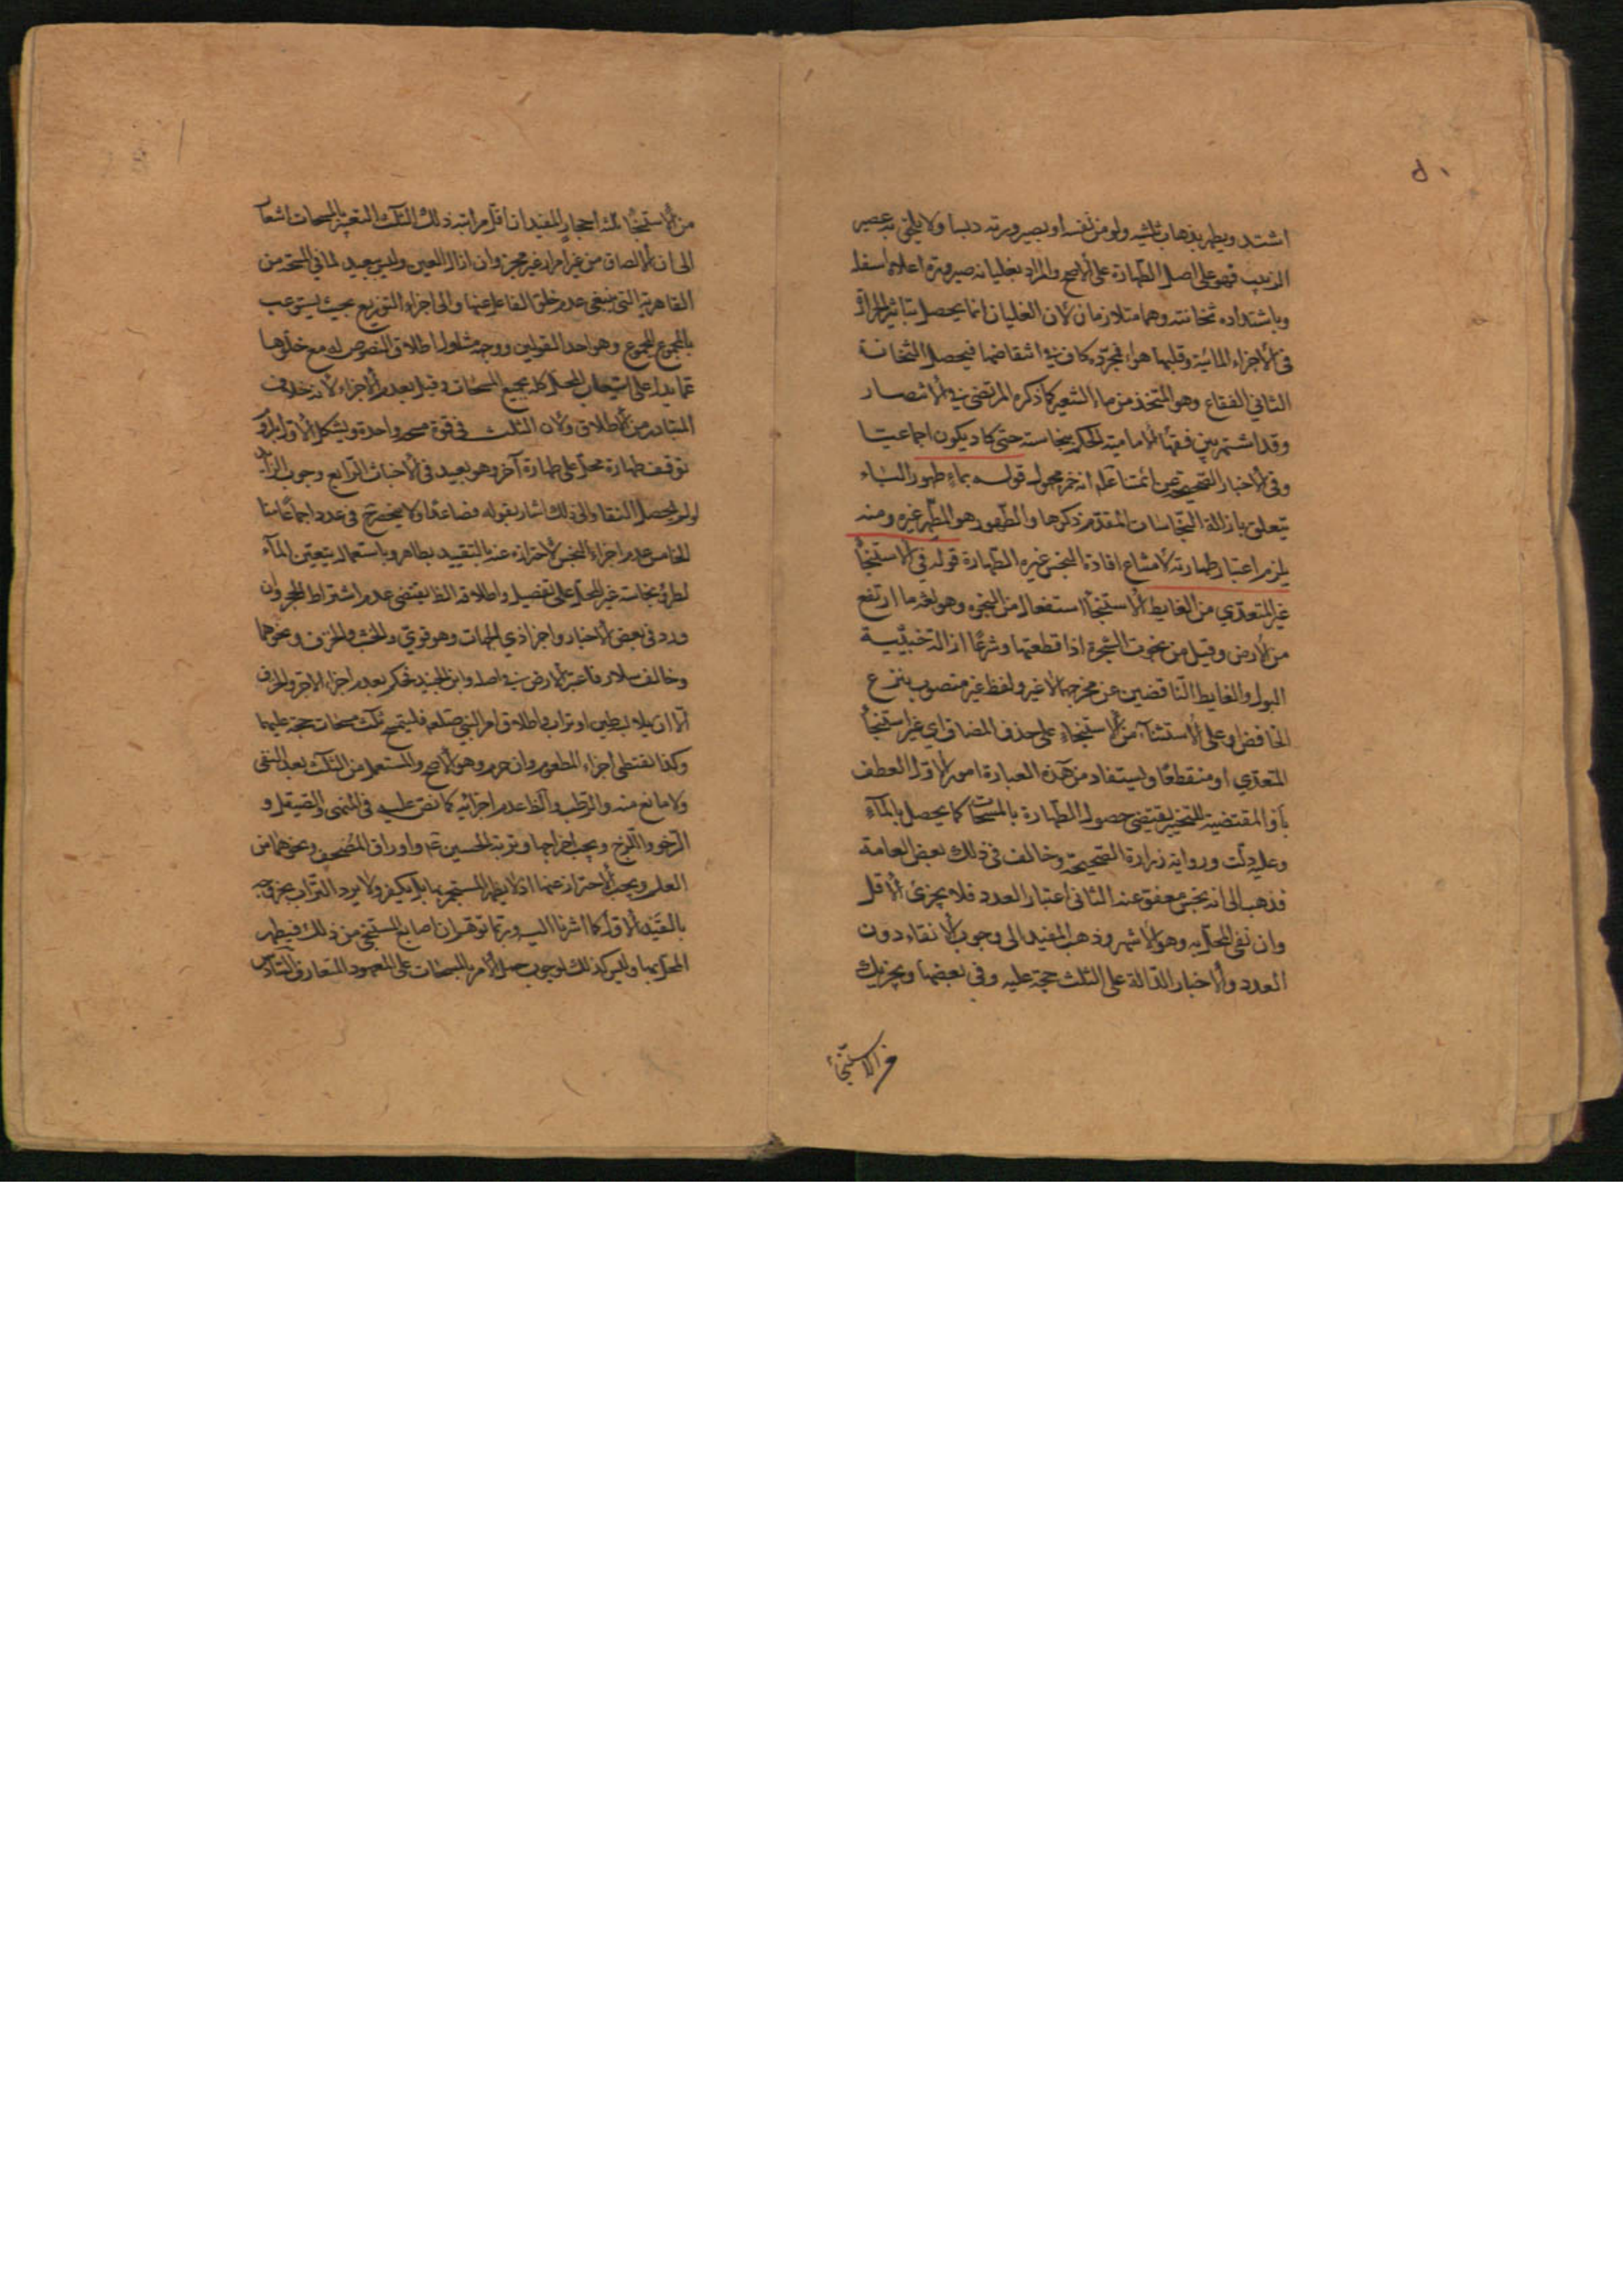 اشتد ويطهر بذهاب ثلثيه ولو من نفسه او بصيرورته دبسا ولا يلحق به عصير
الزبيب فهو على اصل الطهارة على الاصح والمراد بغليانه صيرورة اعلاه اسفله
وباشتداده ثخانته وهما متلازمان لان الغليان انما يحصل بتاثير الحرارة
في الاجزاء المائية وقلبها هواء فمجرده كاف في انتقاضها فيحصل الثخانة
الثاني الفقاع وهو المتخذ من ماء الشعير كما ذكره المرتضى في الانتصار
وقد اشتهر بين فقهاء الامامية الحكم بنجاسته حتى كاد يكون اجماعيا
وفي الاخبار الصحيحة عن ائمتنا انه خمر مجهول قوله بماء طهور الباء
تتعلق بازالة النجاسات المتقدم ذكرها والطهور هو المطهر غيره ومنه
يلزم اعتبار طهارته لامتناع افادة النجس غيره الطهارة قوله في الاستنجاء
غير المتعدي من الغايط الاستنجاء استفعال من النجو وهو لغة ما ارتفع
من الارض وقيل من نجوت الشجرة اذا قطعتها وشرعا ازالة خبثية
البول والغايط الناقضين عن مخرجهما لا غير ولفظ غير منصوب بنزع
الخافض او على الاستثناء من الاستنجاء على حذف المضاف اي غير استنجاء
المتعدي او منقطعا ويستفاد من هذه العبارة امور الاول العطف
باو المقتضية للتخيير يقتضي حصول الطهارة بالمسحات كما يحصل بالماء
وعليه دلت رواية زرارة الصحيحة وخالف في ذلك بعض العامة
فذهب الى انه نجس معفو عنه الثاني اعتبار العدد فلا يجزئ الاقل
وان نقى المحل به وهو الاشهر وذهب المفيد الى وجوب الانقاء دون
العدد والاخبار الدالة على الثلث حجة عليه وفي بعضها ويجزيك
من الاستنجاء
من الاستنجاء ثلثة احجار المفيد ان اقل مراتبه ذلك الثالث التعبير بالمسحات اشعار
الى ان الالصاق من غير امرار غير مجز وان ازال العين وليس ببعيد لما في المسحة من
بالمجموع للمجموع وهو احد القولين ووجهه شمول اطلاق النصوص له مع خلوها
عما يدل على استيعاب المحل كله بجميع المسحات وقيل بعدم الاجزاء لانه خلاف
المتبادر من الاطلاق ولان الثلث في قوة مسح واحدة ويشكل الاول بلزوم
توقف طهارة محل على طهارة آخر وهو بعيد في الاخباث الرابع وجوب الزائد
لو لم يحصل النقاء والى ذلك اشار بقوله فصاعدا ولا ينحصر في عدد اجماعا منا
الخامس عدم اجزاء النجس لاحترازه عنه بالتقييد بطاهر وباستعماله يتعين الماء
لطرو نجاسته غير المحل على تفصيل واطلاقه الظ يقتضي عدم اشتراط الحجر وان
ورد في بعض الاخبار واجزا ذي الجهات وهو قوي والخشب والخزف ونحوهما
وخالف سلار فاعتبر الارض في اصله وابن الجنيد فحكم بعدم اجزاء الاجر والخزف
الا ان يلابس طين او تراب واطلاق امر النبي صلعم فليتمسح بثلث مسحات حجة عليهما
وكذا يقتضي اجزاء المطعوم وان حرم وهو الاصح والمستعمل من الثلث بعد النقى
ولا مانع منه والرطب والظ عدم اجزائه كما نص عليه في المنتهى والصيقل و
الرخو واللزج ويجب اخراجها وتربة الحسين ع واوراق المصحف ونحوهما من
العلم ويجب الاحتراز عنها اذ لا يطهر المستجمر بها بل يكفر ولا يرد التراب بخروجه
بالقيد الاول كما اشرنا اليه وربما توهم ان اصابع المستنجي من ذلك فيطهر
المحل بها وليس كذلك لوجوب حمل الامر بالمسحات على المعهود المتعارف